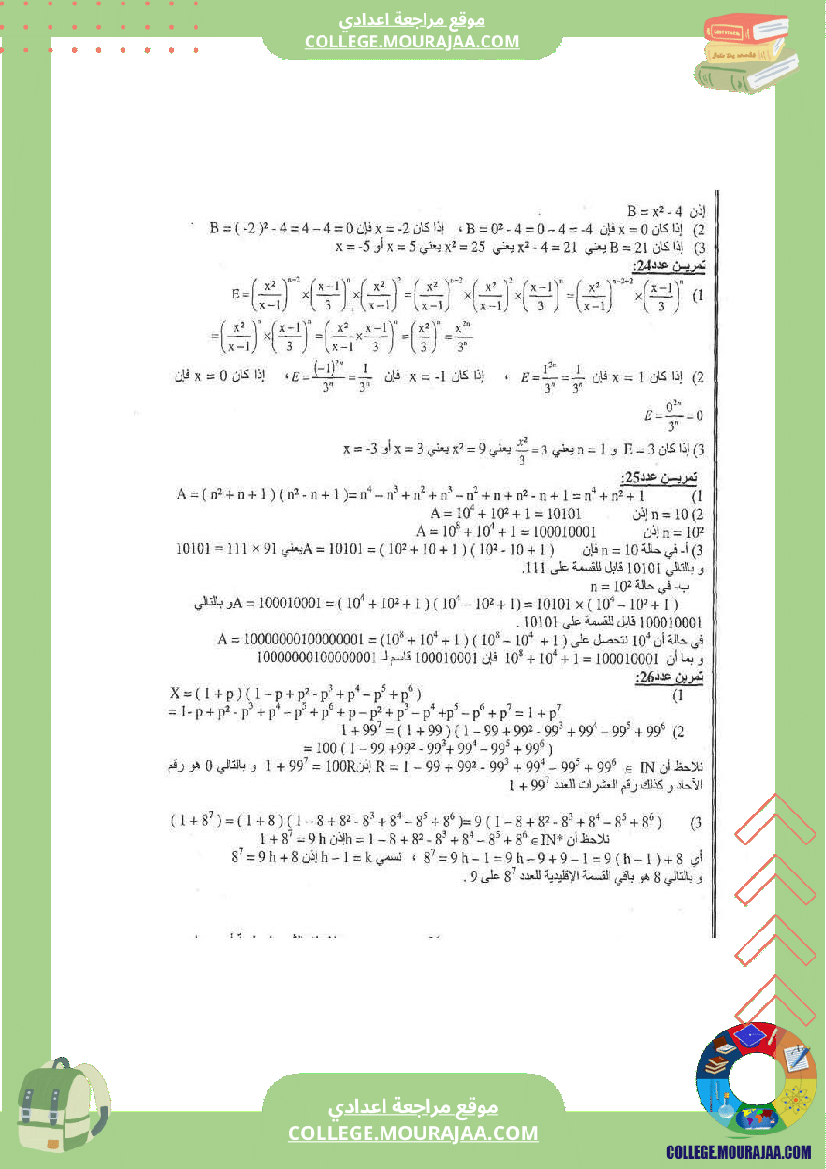 موقع مراجعة اعدادي
COLLEGE.MOURAJAA.COM
إذن B = x² - 4
2) إذا كان x = 0 فإن B = 0² - 4 = 0 – 4 = -4 ، إذا كان x = -2 فإن B = ( -2 )² - 4 = 4 – 4 = 0
3) إذا كان B = 21 يعني x² - 4 = 21 يعني x² = 25 يعني x = 5 أو x = -5
تمريـــن عدد24:
1) E = (x²/(x–1))ⁿ⁻² × ((x–1)/3)ⁿ × (x²/(x–1))² = (x²/(x–1))ⁿ⁻² × (x²/(x–1))² × ((x–1)/3)ⁿ = (x²/(x–1))ⁿ⁻²⁺² × ((x–1)/3)ⁿ
= (x²/(x–1))ⁿ × ((x–1)/3)ⁿ = (x²/(x–1) × (x–1)/3)ⁿ = (x²/3)ⁿ = x²ⁿ/3ⁿ
2) إذا كان x = 1 فإن E = 1²ⁿ/3ⁿ = 1/3ⁿ ، إذا كان x = -1 فإن E = (–1)²ⁿ/3ⁿ = 1/3ⁿ ، إذا كان x = 0 فإن
E = 0²ⁿ/3ⁿ = 0
3) إذا كان E – 3 و n = 1 يعني x²/3 = 3 يعني x² = 9 يعني x = 3 أو x = -3
تمريـــن عدد25:
1) A = ( n² + n + 1 ) ( n² - n + 1 )= n⁴ – n³ + n² + n³ – n² + n + n² - n + 1 = n⁴ + n² + 1
2) n = 10 إذن A = 10⁴ + 10² + 1 = 10101
n = 10² إذن A = 10⁸ + 10⁴ + 1 = 100010001
3) أ- في حالة n = 10 فإن A = 10101 = ( 10² + 10 + 1 ) ( 10² - 10 + 1 ) يعني 10101 = 111 × 91
و بالتالي 10101 قابل للقسمة على 111.
ب- في حالة n = 10²
A = 100010001 = ( 10⁴ + 10² + 1 ) ( 10⁴ – 10² + 1) = 10101 × ( 10⁴ – 10² + 1 ) و بالتالي
100010001 قابل للقسمة على 10101 .
في حالة أن 10⁴ نتحصل على A = 10000000100000001 = (10⁸ + 10⁴ + 1 ) ( 10⁸ – 10⁴ + 1 )
و بما أن 10⁸ + 10⁴ + 1 = 100010001 فإن 100010001 قاسم لـ 1000000010000001
تمرين عدد26:
1) X = ( 1 + p ) ( 1 – p + p² - p³ + p⁴ – p⁵ + p⁶ )
= 1- p + p² - p³ + p⁴ – p⁵ + p⁶ + p – p² + p³ – p⁴ +p⁵ – p⁶ + p⁷ = 1 + p⁷
2) 1 + 99⁷ = ( 1 + 99 ) ( 1 – 99 + 99² - 99³ + 99⁴ – 99⁵ + 99⁶
= 100 ( 1 – 99 +99² - 99³+ 99⁴ – 99⁵ + 99⁶ )
نلاحظ أن R = 1 – 99 + 99² - 99³ + 99⁴ – 99⁵ + 99⁶ ∈ IN إذن 1 + 99⁷ = 100R و بالتالي 0 هو رقم
الآحاد و كذلك رقم العشرات للعدد 1 + 99⁷
3) ( 1 + 8⁷ ) = ( 1 + 8 ) ( 1 – 8 + 8² - 8³ + 8⁴ – 8⁵ + 8⁶ )= 9 ( 1 – 8 + 8² - 8³ + 8⁴ – 8⁵ + 8⁶ )
نلاحظ أن h = 1 – 8 + 8² - 8³ + 8⁴ – 8⁵ + 8⁶ ∈ IN* إذن 1 + 8⁷ = 9 h
أي 8⁷ = 9 h – 1 = 9 h – 9 + 9 – 1 = 9 ( h – 1 ) + 8 ، نسمي h – 1 = k إذن 8⁷ = 9 h + 8
و بالتالي 8 هو باقي القسمة الإقليدية للعدد 8⁷ على 9 .
موقع مراجعة اعدادي
COLLEGE.MOURAJAA.COM
COLLEGE.MOURAJAA.COM